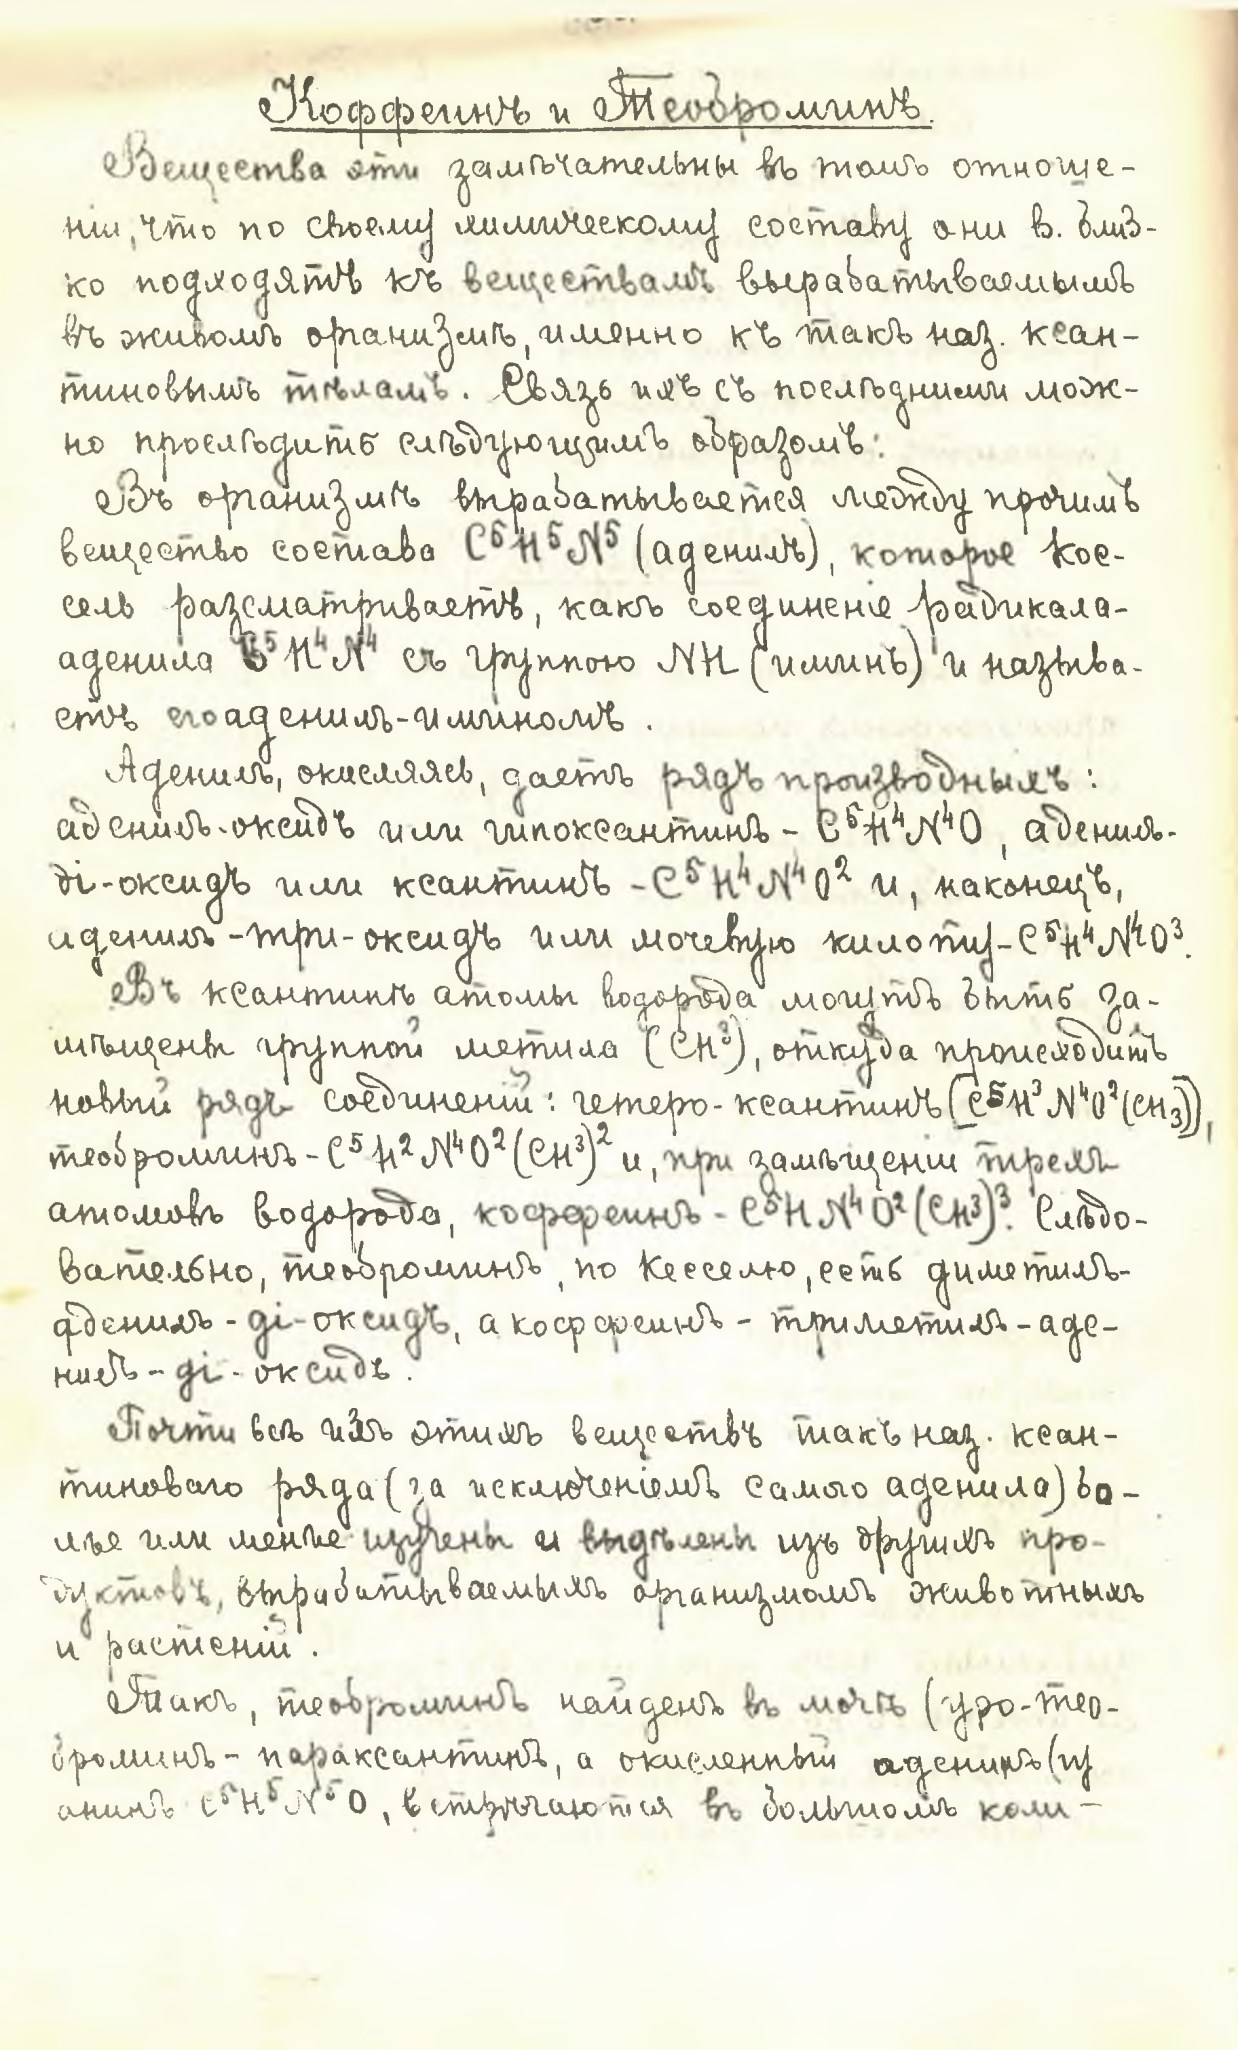 Коффеинъ и Теоброминъ.
Вещества эти замѣчательны въ томъ отноше-
ніи, что по своему химическому составу они в. близ-
ко подходятъ къ веществамъ вырабатываемымъ
въ живомъ организмѣ, именно къ такъ наз. ксан-
тиновымъ тѣламъ. Связь ихъ съ послѣдними мож-
но прослѣдить слѣдующимъ образомъ:
Въ организмѣ вырабатывается между прочимъ
вещество состава C⁵H⁵N⁵ (аденилъ), которое Кос-
сель разсматриваетъ, какъ соединеніе радикала-
аденила C⁵H⁴N⁴ съ группою NH (иминъ) и называ-
етъ его аденилъ-иминомъ.
Аденилъ, окисляясь, даетъ рядъ производныхъ:
аденилъ-оксидъ или гипоксантинъ - C⁵H⁴N⁴O, аденилъ-
ді-оксидъ или ксантинъ - C⁵H⁴N⁴O² и, наконецъ,
аденилъ-три-оксидъ или мочевую килоту - C⁵H⁴N⁴O³.
Въ ксантинѣ атомы водорода могутъ быть за-
мѣщены группой метила (CH³), откуда происходитъ
новый рядъ соединеній: гетеро-ксантинъ [C⁵H³N⁴O²(CH₃)],
теоброминъ - C⁵H²N⁴O²(CH³)² и, при замѣщеніи трехъ
атомовъ водорода, коффеинъ - C⁵HN⁴O²(CH³)³. Слѣдо-
вательно, теоброминъ, по Кесселю, есть диметилъ-
аденилъ-ді-оксидъ, а коффеинъ - триметилъ-аде-
нилъ-ді-оксидъ.
Почти всѣ изъ этихъ веществъ такъ наз. ксан-
тиноваго ряда (за исключеніемъ самого аденила) бо-
лѣе или менѣе изучены и выдѣлены изъ другихъ про-
дуктовъ, вырабатываемыхъ организмомъ животныхъ
и растеній.
Такъ, теоброминъ найденъ въ мочѣ (уро-тео-
броминъ - параксантинъ, а окисленный аденинъ (гу
анинъ C⁵H⁵N⁵O, встрѣчаются въ большомъ коли-